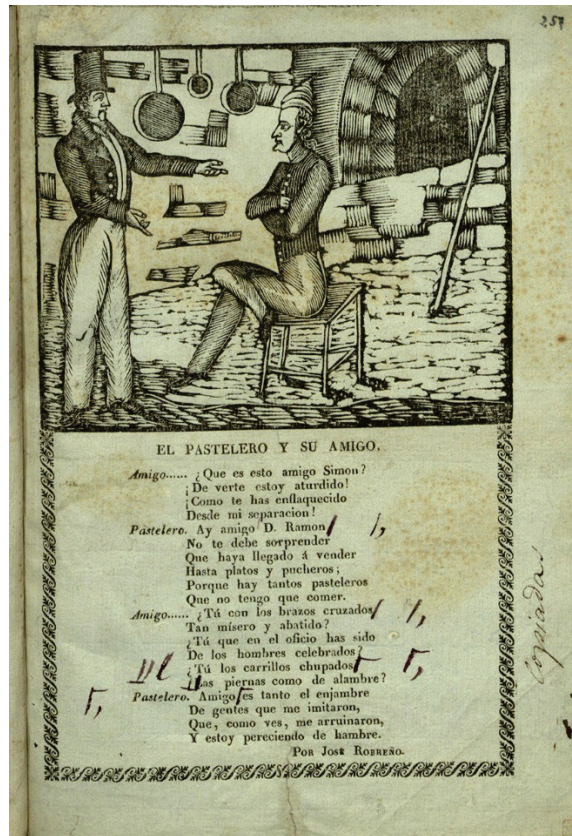 257
EL PASTELERO Y SU AMIGO.
Amigo...... ¿Que es esto amigo Simon?
¡De verte estoy aturdido!
¡Como te has enflaquecido
Desde mi separacion!
Pastelero. Ay amigo D. Ramon
No te debe sorprender
Que haya llegado á vender
Hasta platos y pucheros;
Porque hay tantos pasteleros
Que no tengo que comer.
Amigo...... ¿Tú con los brazos cruzados
Tan mísero y abatido?
¿Tú que en el oficio has sido
De los hombres celebrados?
¿Tú los carrillos chupados
piernas como de alambre?
Pastelero. Amigo es tanto el enjambre
De gentes que me imitaron,
Que, como ves, me arruinaron,
Y estoy pereciendo de hambre.
POR JOSE ROBREÑO.
Copiadas